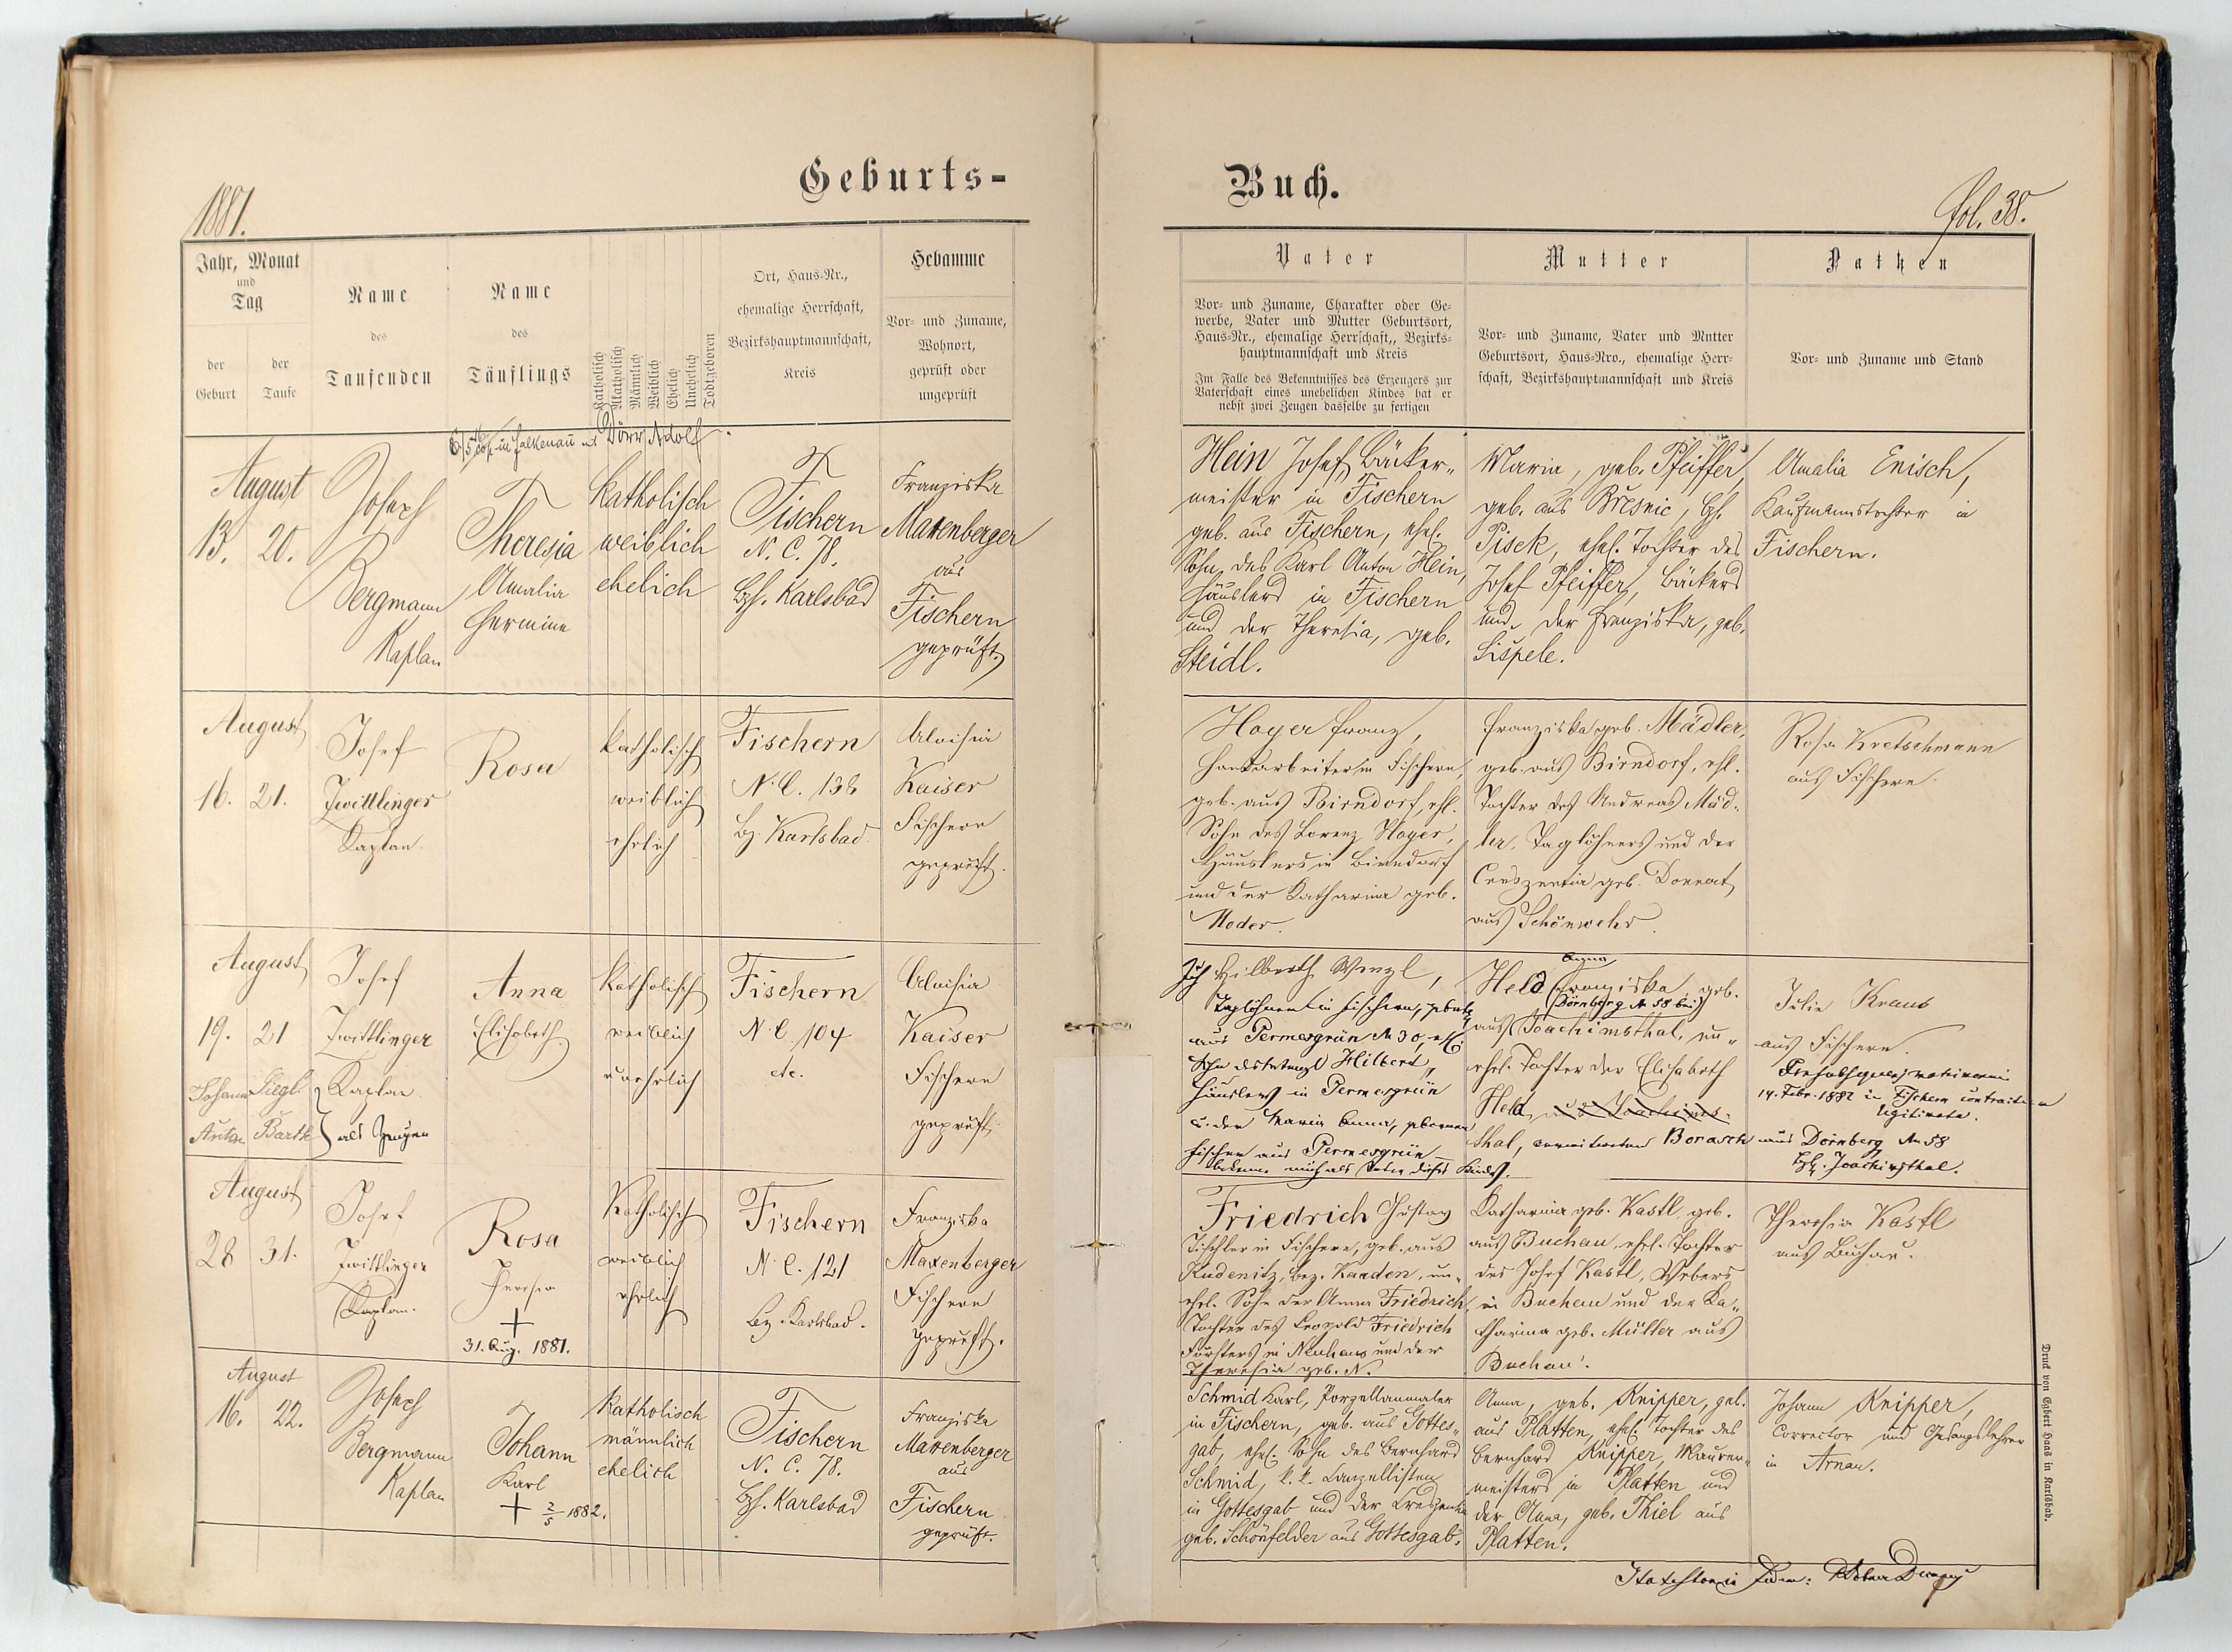 Geburts-
Buch.
1881.
fol. 38.
Jahr, Monat
und
Tag
der
Geburt
der
Taufe
Name
des
Taufenden
Name
des
Täuflings
Katholisch
Akatholisch
Männlich
Weiblich
Ehelich
Unehelich
Todtgeboren
Ort, Haus-Nr.,
ehemalige Herrschaft,
Bezirkshauptmannschaft,
Kreis
Hebamme
Vor- und Zuname,
Wohnort,
geprüft oder
ungeprüft
Vater
Vor- und Zuname, Charakter oder Ge-
werbe, Vater und Mutter Geburtsort,
Haus-Nr., ehemalige Herrschaft,, Bezirks-
hauptmannschaft und Kreis
Im Falle des Bekenntnisses des Erzeugers zur
Vaterschaft eines unehelichen Kindes hat er
nebst zwei Zeugen dasselbe zu fertigen
Mutter
Vor- und Zuname, Vater und Mutter
Geburtsort, Haus-Nro., ehemalige Herr-
schaft, Bezirkshauptmannschaft und Kreis
Pathen
Vor- und Zuname und Stand
in Falkenau mit Dörr Adolf.
August
13. 20.
Joseph
Bergmann
Kaplan
Theresia
Amalia
Hermine
katholisch
weiblich
ehelich
Fischern
N. C. 78.
Bzh. Karlsbad
Franziska
Maxenberger
aus
Fischern
geprüft.
Hein Josef, Bäcker-
meister in Fischern
geb. aus Fischern, ehel.
Sohn des Karl Anton Hein,
Häuslers in Fischern
und der Theresia, geb.
Steidl.
Maria, geb. Pfeiffer,
geb. aus Břesnic, Bzh.
Pisek, ehel. Tochter des
Josef Pfeiffer, Bäckers
und der Franziska, geb.
Amalia Enisch,
Kaufmannstochter in
Fischern.
August
16. 21.
Josef
Zwittlinger
Kaplan.
Rosa
katholisch
weiblich
ehelich
Fischern
N. C. 138
Bz. Karlsbad
Aloisia
Kaiser
Fischern
geprüft.
Hoyer Franz,
Handarbeiter in Fischern,
geb. aus Birndorf, ehl.
Sohn des Lorenz Hoyer,
Häuslers in Birndorf
und der Katharina geb.
Moder.
Franziska geb. Mädler,
geb. aus Birndorf, ehl.
Tochter des Andreas Mäd-
ler, Taglöhners und der
Creszentia geb. Donnat,
aus Schönwehr.
Rosa Kretschmann
aus Fischern.
August
19. 21
Johann Siegl
Anton Barth
Josef
Zwittlinger
Kaplan
als Zeugen
Anna
Elisabeth
katholisch
weiblich
unehelich
Fischern
N. C. 104
etc.
Aloisia
Kaiser
Fischern
geprüft.
Ich Hilbert Wenzl,
Taglöhner in Fischern, geboren
aus Permesgrün No 30, ehl.
Sohn des Wenzl Hilbert,
Häuslers in Permesgrün
u. der Maria Anna, gebornen
Fischer aus Permesgrün
bekenne mich als Vater dieses Kindes.
Anna
Held Franziska, geb.
(Dörnberg No 58 bei)
aus Joachimsthal, un-
ehel. Tochter der Elisabeth
Held, aus Joachims-
thal, Borasch aus Dörnberg No 58
Bzh. Joachimsthal.
Julie Kraus
aus Fischern.
14. Febr. 1882 in Fischern
legitimata.
August
28 31.
Josef
Zwittlinger
Kaplan.
Rosa
Theresia
+
31. Aug. 1881.
Katholisch
weiblich
ehelich
Fischern
N. C. 121
Bz. Karlsbad.
Franziska
Maxenberger
Fischern
geprüft.
Friedrich Gustav
Tischler in Fischern, geb. aus
Kudenitz, Bez. Kaaden, un-
ehel. Sohn der Anna Friedrich,
Tochter des Leopold Friedrich
Försters in Neuhaus und der
Theresia geb. N.
Katharina geb. Kastl, geb.
aus Buchau, ehel. Tochter
des Josef Kastl, Webers
in Buchau und der Ka-
tharina geb. Müller aus
Buchau.
Theresia Kastl
aus Buchau.
August
16. 22.
Joseph
Bergmann
Kaplan
Johann
Karl
+ 2/5 1882.
katholisch
männlich
ehelich
Fischern
N. C. 78.
Bzh. Karlsbad
Franziska
Maxenberger
aus
Fischern
geprüft.
Schmid Karl, Porzellanmaler
in Fischern, geb. aus Gottes-
gab, ehel. Sohn des Bernhard
Schmid, k. k. Kanzellisten
in Gottesgab und der Creszentia
geb. Schönfelder aus Gottesgab.
Anna, geb. Knipper, geb.
aus Platten, ehel. Tochter des
Bernhard Knipper, Maurer-
meisters in Platten und
der Anna, geb. Thiel aus
Platten.
Johann Knipper,
Corrector und Gesangslehrer
in Arnau.
Druck von Egbert Haas in Karlsbad.